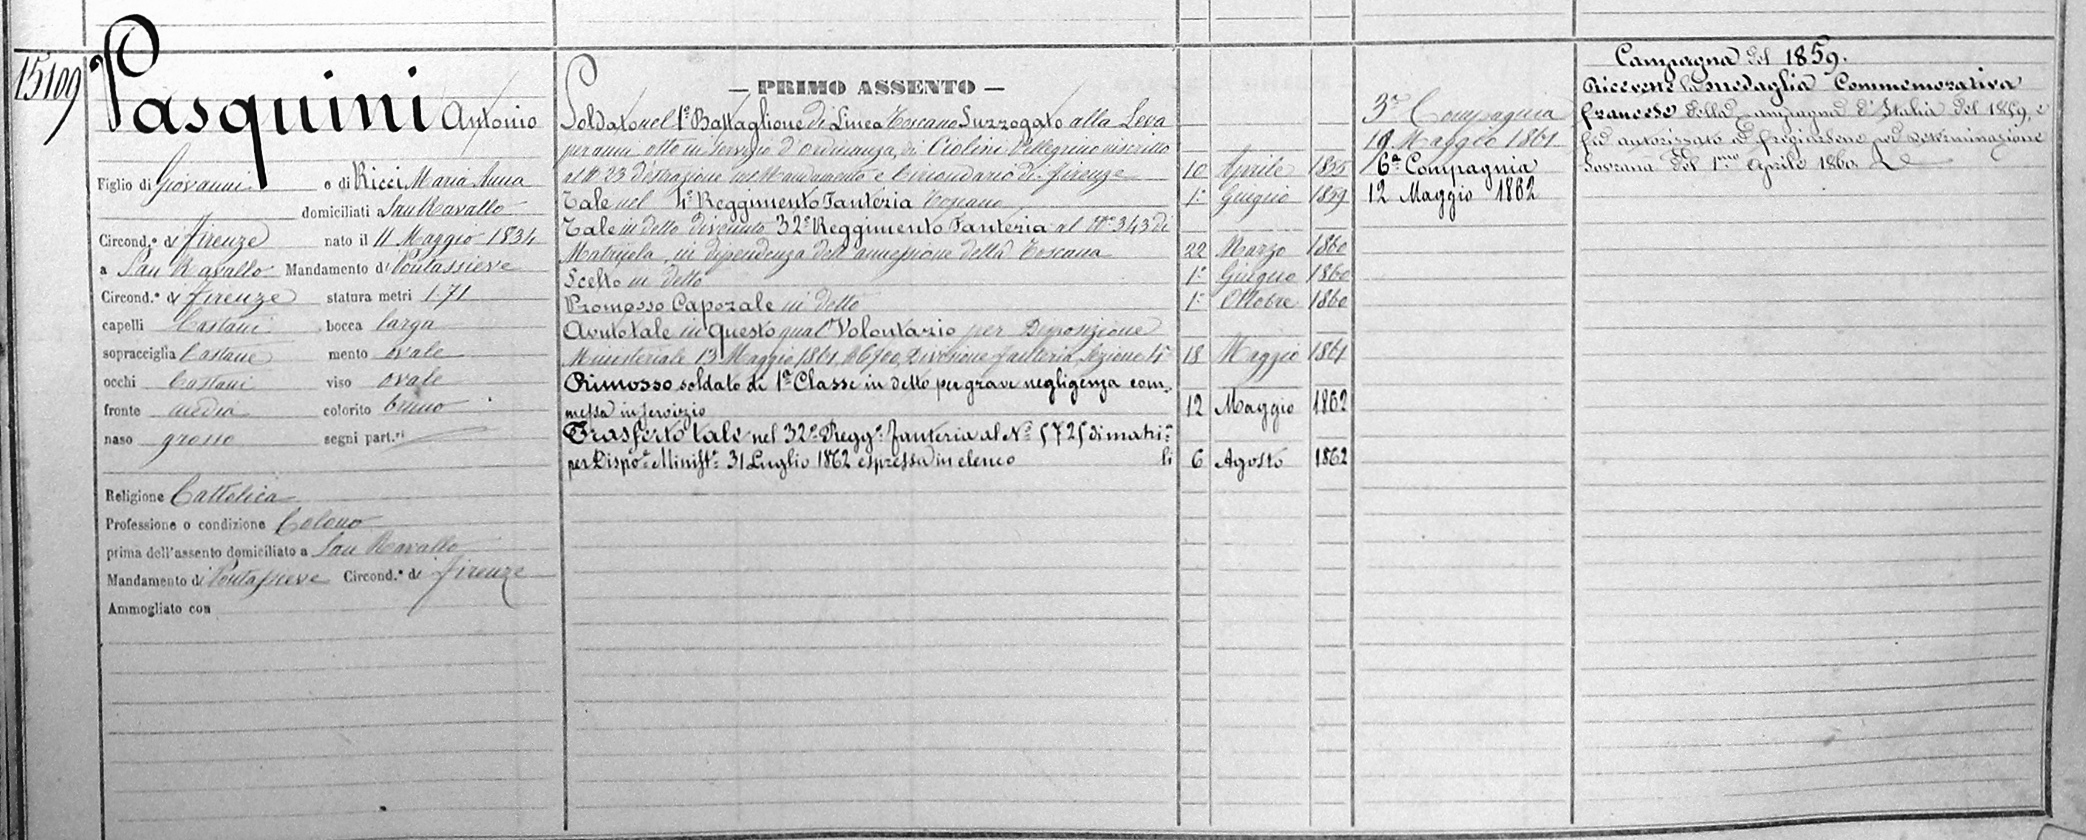 15109
Pasquini Antonio
Figlio di Giovanni e di Ricci Maria Anna
domiciliati a San Ravallo
Circond.º di Firenze nato il 11 Maggio 1834
a San Ravallo Mandamento di Pontassieve
Circond.º di Firenze statura metri 1.71
capelli Castani bocca larga
sopracciglia Castane mento ovale
occhi Castani viso ovale
fronte media colorito bruno
naso grosso segni part.ri
Religione Cattolica
Professione o condizione Colono
prima dell'assento domiciliato a San Ravallo
Mandamento di Pontassieve Circond.º di Firenze
Ammogliato con
— PRIMO ASSENTO —
Soldato nel 1º Battaglione di Linea Toscano Surrogato alla Leva
per anni otto in servizio d'ordinanza, di Ciolini Pellegrino inscritto
al Nº 23 d'estrazione nel Mandamento e Circondario di Firenze 10 Aprile 1855
Tale nel 4º Reggimento Fanteria Toscano 1º Giugno 1859
Tale in detto divenuto 32º Reggimento Fanteria al Nº 343 di
Matricola, in dipendenza dell'annessione della Toscana 22 Marzo 1860
Scelto in detto 1º Giugno 1860
Promosso Caporale in detto 1º Ottobre 1860
Avuto tale in questo qual Volontario per Disposizione
Ministeriale 13 Maggio 1861, Divisione fanteria, Sezione 18 Maggio 1861
Rimosso soldato di 1ª Classe in detto per grave negligenza com-
messa in servizio 12 Maggio 1862
Trasferto tale nel 32º Regg.º fanteria al Nº 5725 di matri.
per Dispo.e Minist.e 31 Luglio 1862 espressa in elenco li 6 Agosto 1862
3ª Compagnia
18 Maggio 1861
6ª Compagnia
12 Maggio 1862
Campagna del 1859.
Ricevette la medaglia Commemorativa
francese della Campagna d'Italia del 1859, e
fu autorizzato a fregiarsene per Determinazione
Sovrana del 1mo Aprile 1860